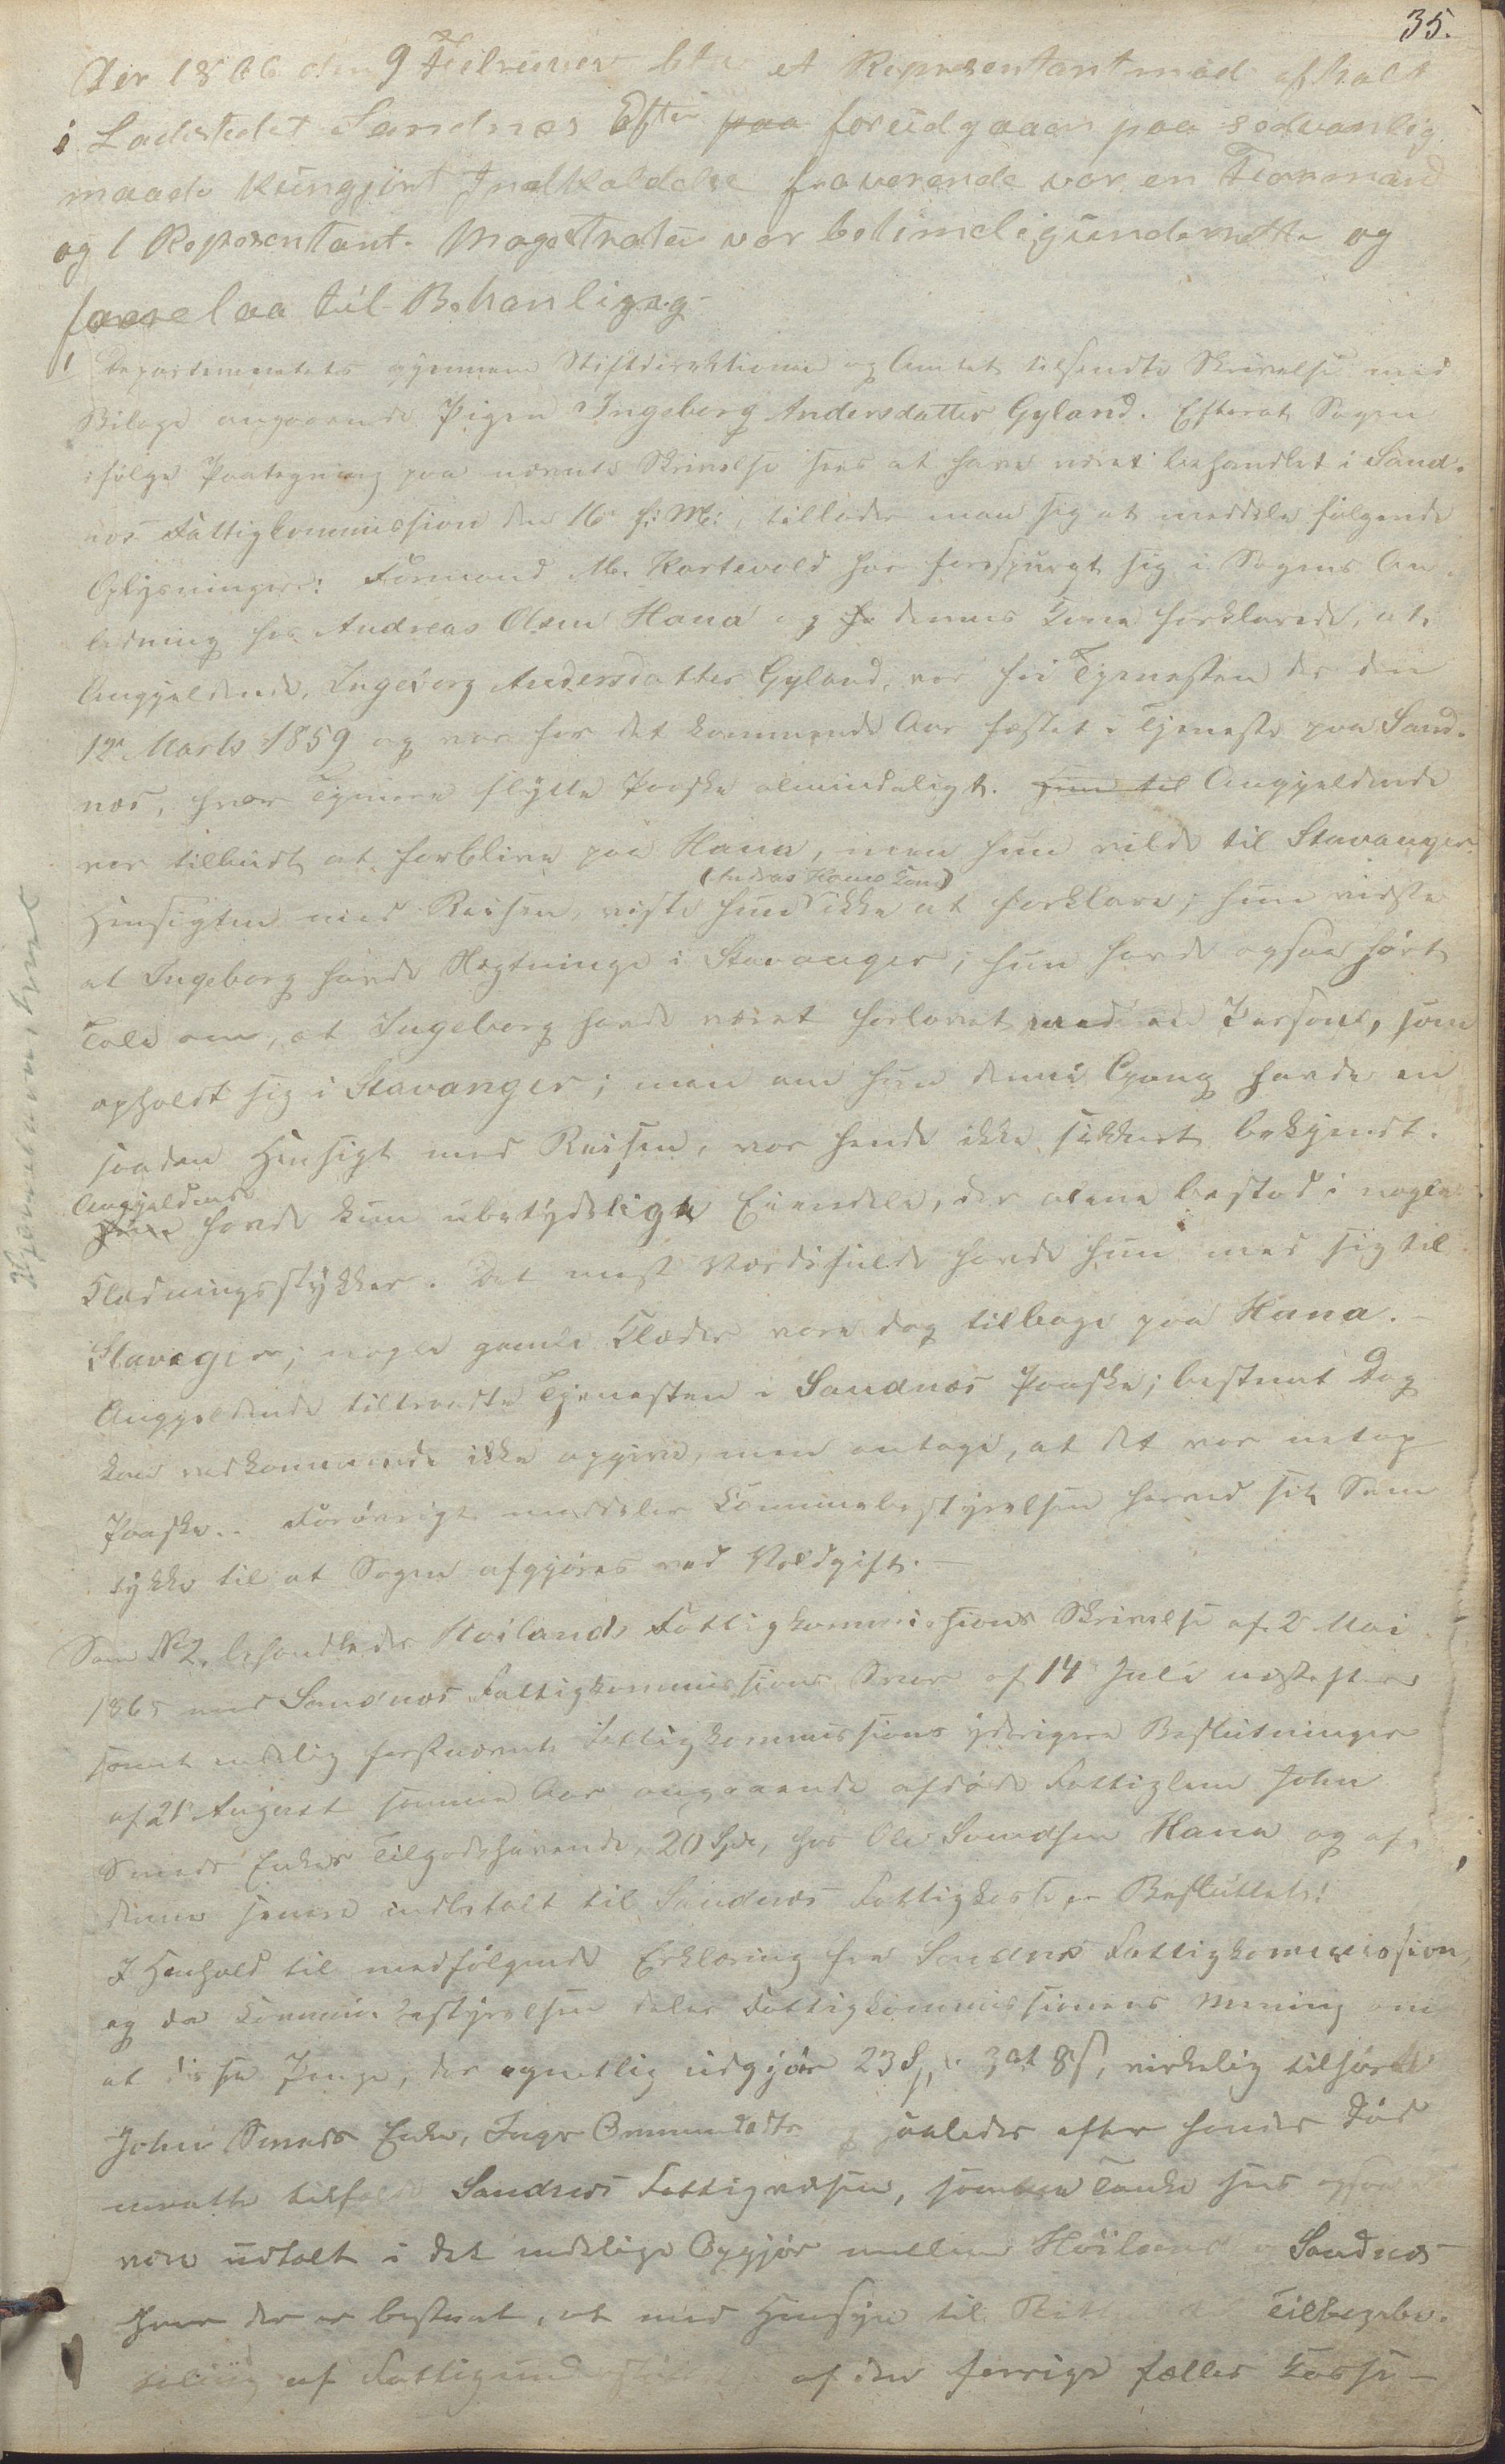 35.
Aar 1866 den 9 Februar blev et Representantmød afhalt
i Ladstedet Sandnes Efter paa forudgaaen paa sedvanlig
maade kungjort Indkaldelse fraverende var en Formand
og 1 Representant. Magestraten var betimelig underrette og
forelaa til Behanling
1 Departementets gjennem Stiftdirektionen og Amtet tilsendte Skrivelse med
Bilage angaaende Pigen Ingeborg Andersdatter Gyland. Efterat Sagen
ifølge Paategning paa nævnte Skrivelse sees at have været behandlet i Sand-
nes Fattigkommission den 16 f: M:, tillader man sig at meddele følgende
Oplysninger: Formand M. Kartevold har forespurgt sig i Sagens An-
ledning hos Andreas Olsen Hana og denes Kone forklarede, at
Angjeldende, Ingeborg Andersdatter Gyland, var fri Tjenesten der den
12 Marts 1859 og var for det kommende Aar fæstet i Tjeneste paa Sand-
nes, hvor Tjenere flytte Paaske almindeligt. Hun til Angjeldende
var tilbudt at forblive paa Hana, men hun vilde til Stavanger.
(Andreas Hanas Kone)
Hensigten med Reisen, viste hun ikke at forklare; hun vidste
at Ingeborg havde Slægtninge i Stavanger; hun havde ogsaa hørt
Tale om, at Ingeborg havde været forlovet med en Person, som
opholdt sig i Stavanger; men om hun denne Gang havde en
saadan Hensigt med Reisen, var hende ikke sikkert bekjendt.
Angjeldende
Hun havde kun ubetydelige Eiendele, der alene bestod i nogle
Klædningsstykker. Det mest Værdifulde havde hun med sig til
Stavager; nogle gamle Klæder vare dog tilbage paa Hana.-
Angjeldende tiltraadte Tjenesten i Sandnes Paaske; bestemt Dag
kan vedkommende ikke opgive, men antage, at det var netop
Paaske.. Forøvrigt meddeler Communebestyrelsen herved sit Sam-
tykke til at Sagen afgjøres ved Voldgift.-
Som № 2. behandledes Høilands Fattigkommissions Skrivelse af 2 Mai
1865 med Sandnes Fattigkommissions Svar af 14 Juli næstefter
samt endelig førstnævnte Fattigkommissions yderigere Beslutninger
af 21 August samme Aar angaaende afdøde Fattiglem John
Smeds Enkes Tilgodehavende, 20 Spd, hos Ole Svendsen Hana og af
denne senere indbetalt til Sandnes Fattigkasse Besluttet:
I Henhold til medfølgende Erklæring fra Sandnes Fattigkommission,
og da Kommunebestyrelsen deler Fattigkommissionens Mening om
at disse Penge, der egentlig udgjør 23 Spd. 3 ort 8 s, virkelig tilhørte
John Smeds Enke, Inger Ommundsdtr og saaledes efter hendes Død
maatte tilfalde Sandnes Fattigvæsen, samme Tanke sees ogsaa
være udtalt i det endelige Opgjør mellem Høiland og Sandnes
hvor der er bestemt, at med Hensyn til Tilbagebe-
taling af Fattigunderstøttelse af den forrige fælles Kasse-